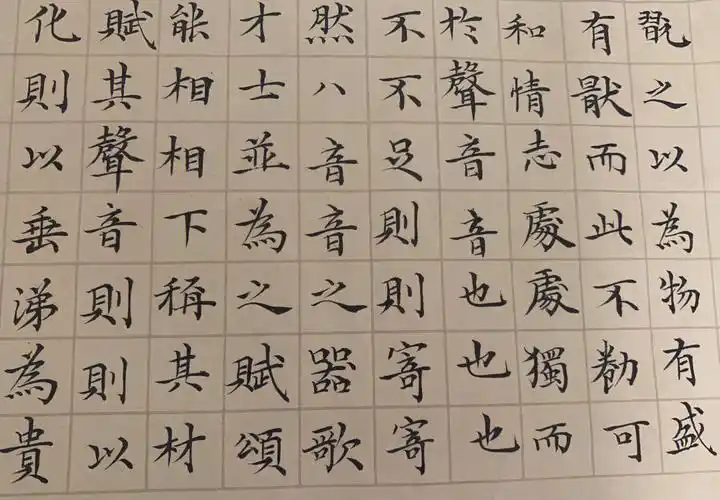 翫之以為物有盛
有猒而此不勌可
和情志處處獨而
於聲音音也也也
不不足則則寄寄
然八音音之器歌
才士並為之賦頌
能相相下稱其材
賦其聲音則則以
化則以垂涕為貴